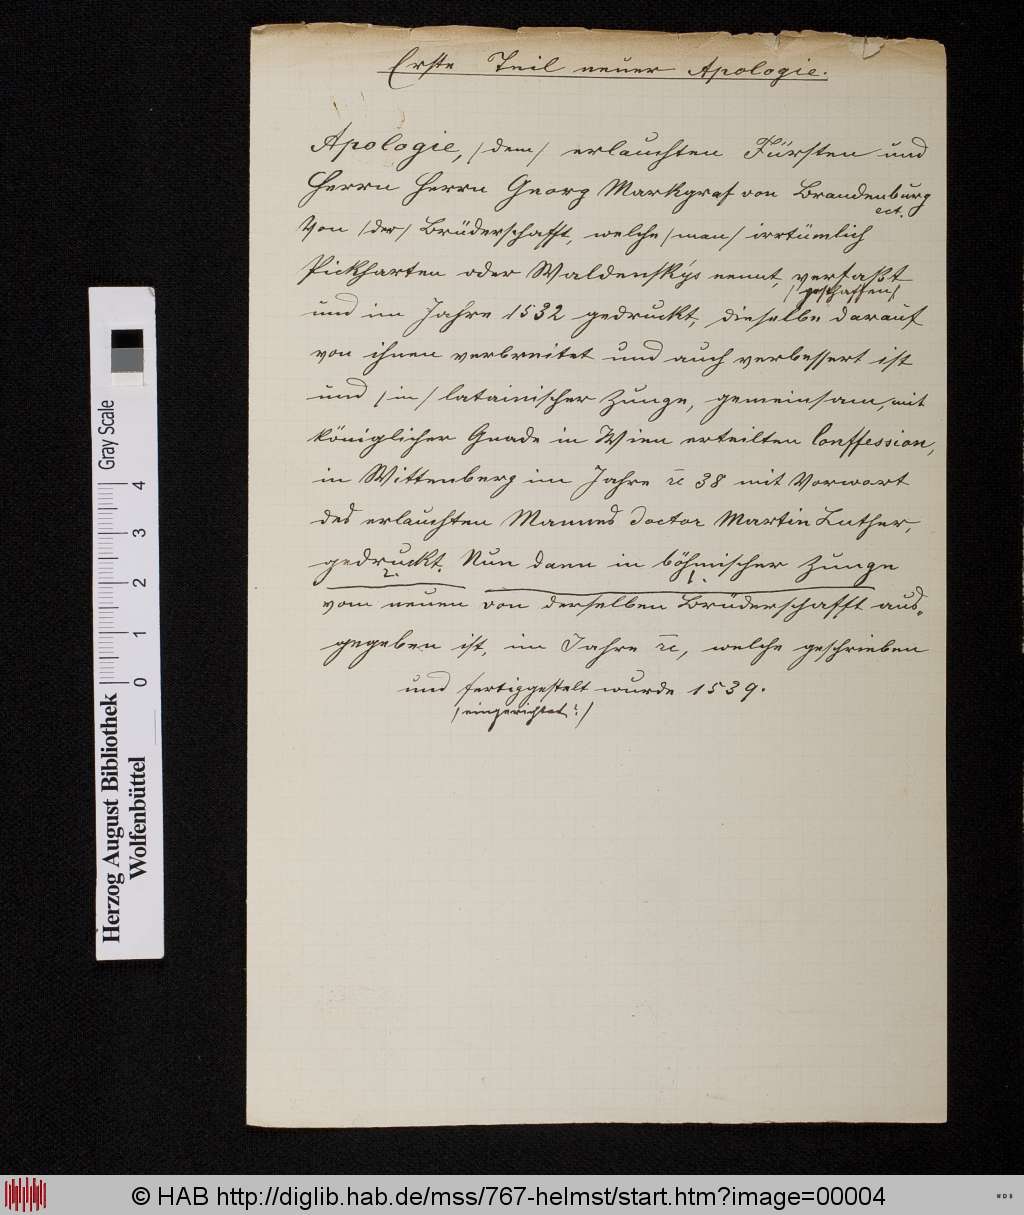 Erste Teil neuer Apologie.
Apologie, /dem/ erlauchten Fürsten und
Herrn Herrn Georg Markgraf von Brandenburg
ect.
Von /der/ Brüderschafft, welche /man/ irrtümlich
Pickharten oder Waldenskýs nennt, verfaßt
/geschaffen/
und im Jahre 1532 gedruckt, dieselbe darauf
von ihnen verbreitet und auch verbessert ist
und /in/ lateinischer Zunge, gemeinsam, mit
königlicher Gnade in Wien erteilten Conffession,
in Wittenberg im Jahre rc 38 mit Vorwort
des erlauchten Mannes Doctor Martin Luther,
gedruckt. Nun dann in böhmischer Zunge
2. 1.
vom neuen von derselben Brüderschafft aus-
gegeben ist, im Jahre rc, welche geschrieben
und fertiggestellt wurde 1539.
/eingerichtet?/
Herzog August Bibliothek
Wolfenbüttel
Gray Scale
0 1 2 3 4
© HAB http://diglib.hab.de/mss/767-helmst/start.htm?image=00004
WDB